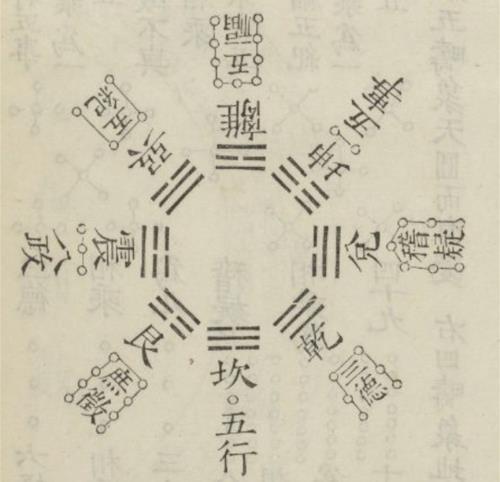 五福
離
坤
五事
兌
稽疑
乾
三德
坎
五行
艮
庶徵
震
八政
巽
五紀